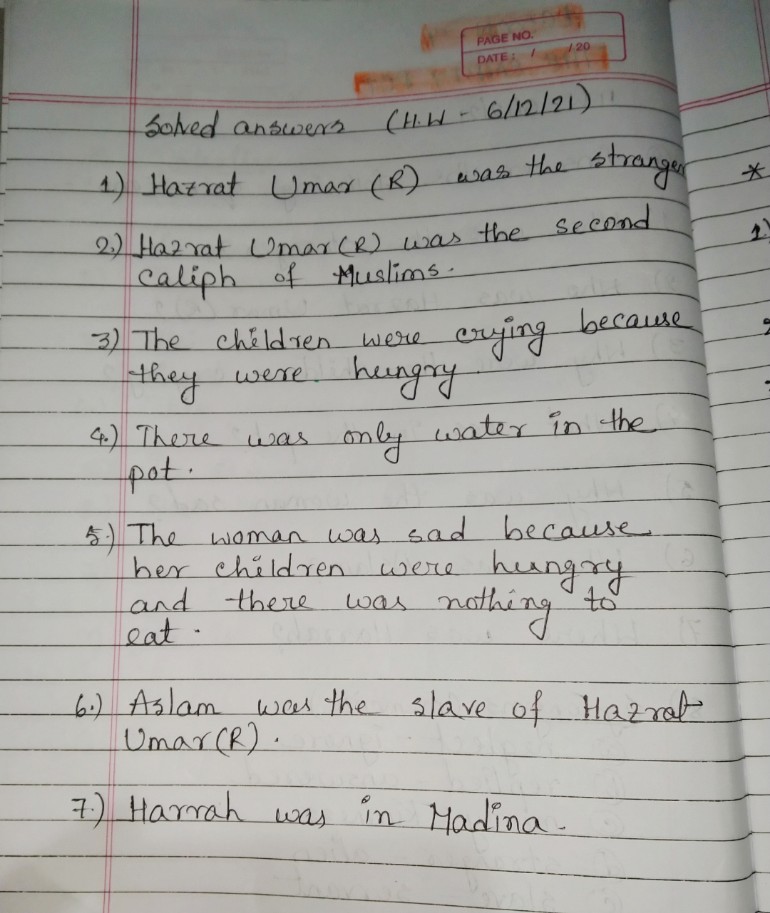 PAGE NO.
DATE: / /20
Solved answers (H.W - 6/12/21)
1) Hazrat Umar (R) was the stranger
2.) Hazrat Umar (R) was the second
caliph of Muslims.
3) The children were crying because
they were hungry
4.) There was only water in the
pot.
5.) The woman was sad because
her children were hungry
and there was nothing to
eat.
6.) Aslam was the slave of Hazrat
Umar (R).
7.) Harrah was in Madina.
*
1)